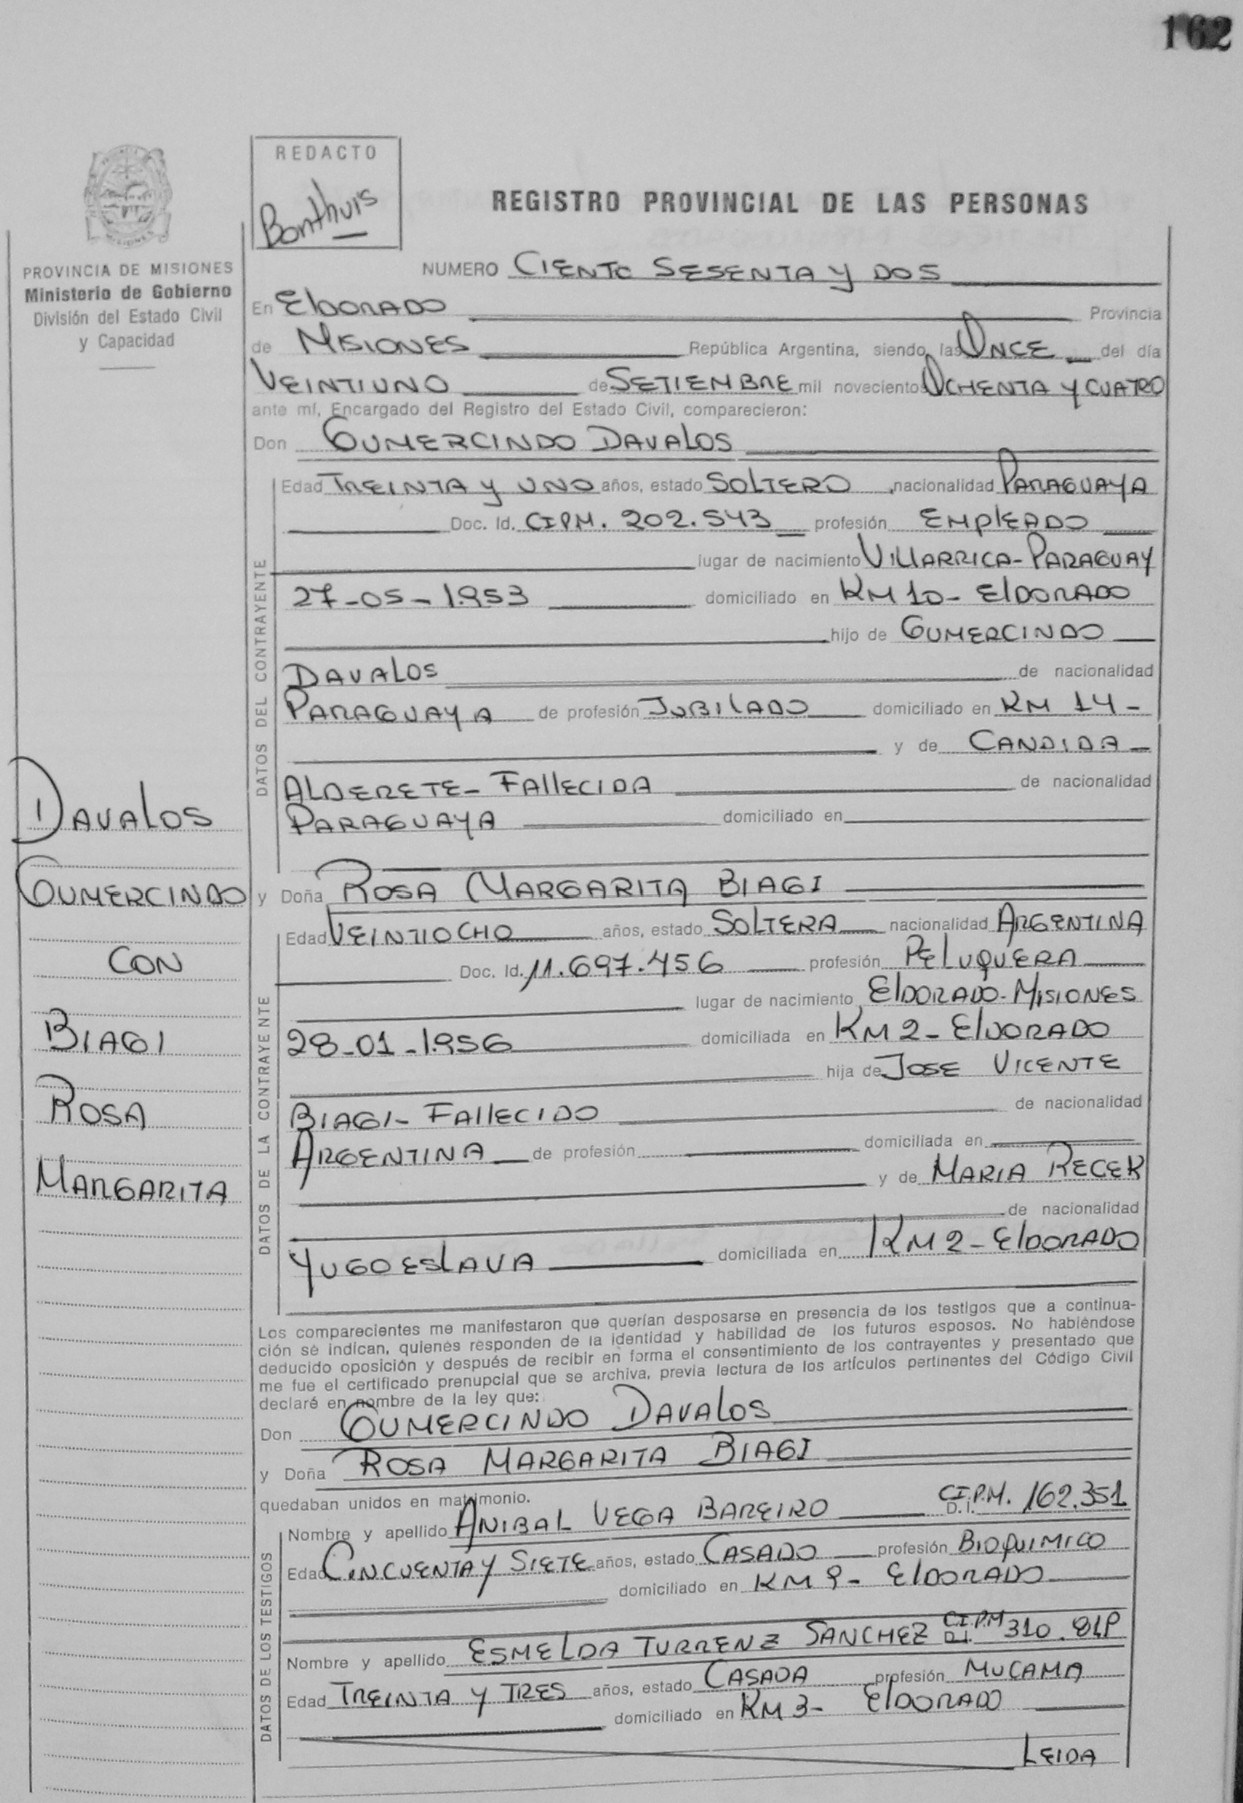 162
REDACTO
Bonthuis
REGISTRO PROVINCIAL DE LAS PERSONAS
PROVINCIA DE MISIONES
Ministerio de Gobierno
División del Estado Civil
y Capacidad
NUMERO CIENTO SESENTA Y DOS
En ELDORADO Provincia
de MISIONES República Argentina, siendo las ONCE del día
VEINTIUNO de SETIEMBRE mil novecientos OCHENTA Y CUATRO
ante mí, Encargado del Registro del Estado Civil, comparecieron:
Don GUMERCINDO DAVALOS
DATOS DEL CONTRAYENTE
Edad TREINTA Y UNO años, estado SOLTERO, nacionalidad PARAGUAYA
Doc. Id. CIPM. 202.543 profesión EMPLEADO
lugar de nacimiento VILLARRICA-PARAGUAY
27-05-1953 domiciliado en KM 10- ELDORADO
hijo de GUMERCINDO
DAVALOS de nacionalidad
PARAGUAYA de profesión JUBILADO domiciliado en KM 14-
y de CANDIDA
ALDERETE- FALLECIDA de nacionalidad
PARAGUAYA domiciliado en
DAVALOS
GUMERCINDO
CON
BIAGI
ROSA
MARGARITA
y Doña ROSA MARGARITA BIAGI
DATOS DE LA CONTRAYENTE
Edad VEINTIOCHO años, estado SOLTERA nacionalidad ARGENTINA
Doc. Id. 11.697.456 profesión PELUQUERA
lugar de nacimiento ELDORADO-MISIONES
28-01-1956 domiciliada en KM 2- ELDORADO
hija de JOSE VICENTE
BIAGI- FALLECIDO de nacionalidad
ARGENTINA de profesión domiciliada en
y de MARIA RECEK
de nacionalidad
YUGOESLAVA domiciliada en KM 2- ELDORADO
Los comparecientes me manifestaron que querían desposarse en presencia de los testigos que a continua-
ción se indican, quienes responden de la identidad y habilidad de los futuros esposos. No habiéndose
deducido oposición y después de recibir en forma el consentimiento de los contrayentes y presentado que
me fue el certificado prenupcial que se archiva, previa lectura de los artículos pertinentes del Código Civil
declaré en nombre de la ley que:
Don GUMERCINDO DAVALOS
y Doña ROSA MARGARITA BIAGI
quedaban unidos en matrimonio.
DATOS DE LOS TESTIGOS
Nombre y apellido ANIBAL VEGA BAREIRO C.I.P.M. 162.351
Edad CINCUENTA Y SIETE años, estado CASADO profesión BIOQUIMICO
domiciliado en KM 9- ELDORADO
Nombre y apellido ESMELDA TURRENZ SANCHEZ C.I.P.M 310.
Edad TREINTA Y TRES años, estado CASADA profesión MUCAMA
domiciliado en KM 3- ELDORADO
LEIDA